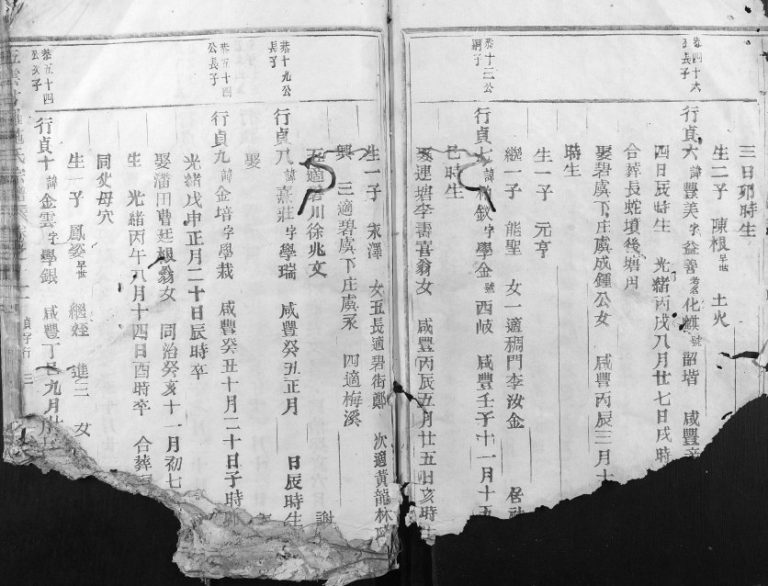 三日卯時生
生二子 陳根早世 土火
恭四十六公長子
行貞六諱豐美字益善考名化麒號韶堦 咸豐辛
四日辰時生 光緒丙戌八月廿七日戌時
合葬長蛇墳後塘內
娶碧虞下庄虞成鍾公女 咸豐丙辰三月十
時生
生一子 元亨
繼一子 能聖 女一適稠門李汝金
恭十二公嗣子
行貞七諱 欽字學金號西岐 咸豐壬子十一月十五
巳時生
娶連塘李壽喜翁女 咸豐丙辰五月廿五日亥時生
生一子 永澤 女五長適碧街鄭 次適黃龍林
興 三適碧虞下庄虞承 四適梅溪
五適碧川徐兆文
恭十九公長子
行貞八諱熹莊字學瑞 咸豐癸丑正月 日辰時生
娶 謝
恭五十四公長子
行貞九諱金培字學栽 咸豐癸丑十月二十日子時
光緒戊申正月二十日辰時卒
娶潘田曹廷根翁女 同治癸亥十一月初七
生 光緒丙午八月十四日酉時卒 合葬
同父母穴
恭五十四公次子
行貞十諱金雲字學銀 咸豐丁巳九月
生一子 鳳姿早世 繼姪 進三 女
貞字行 三